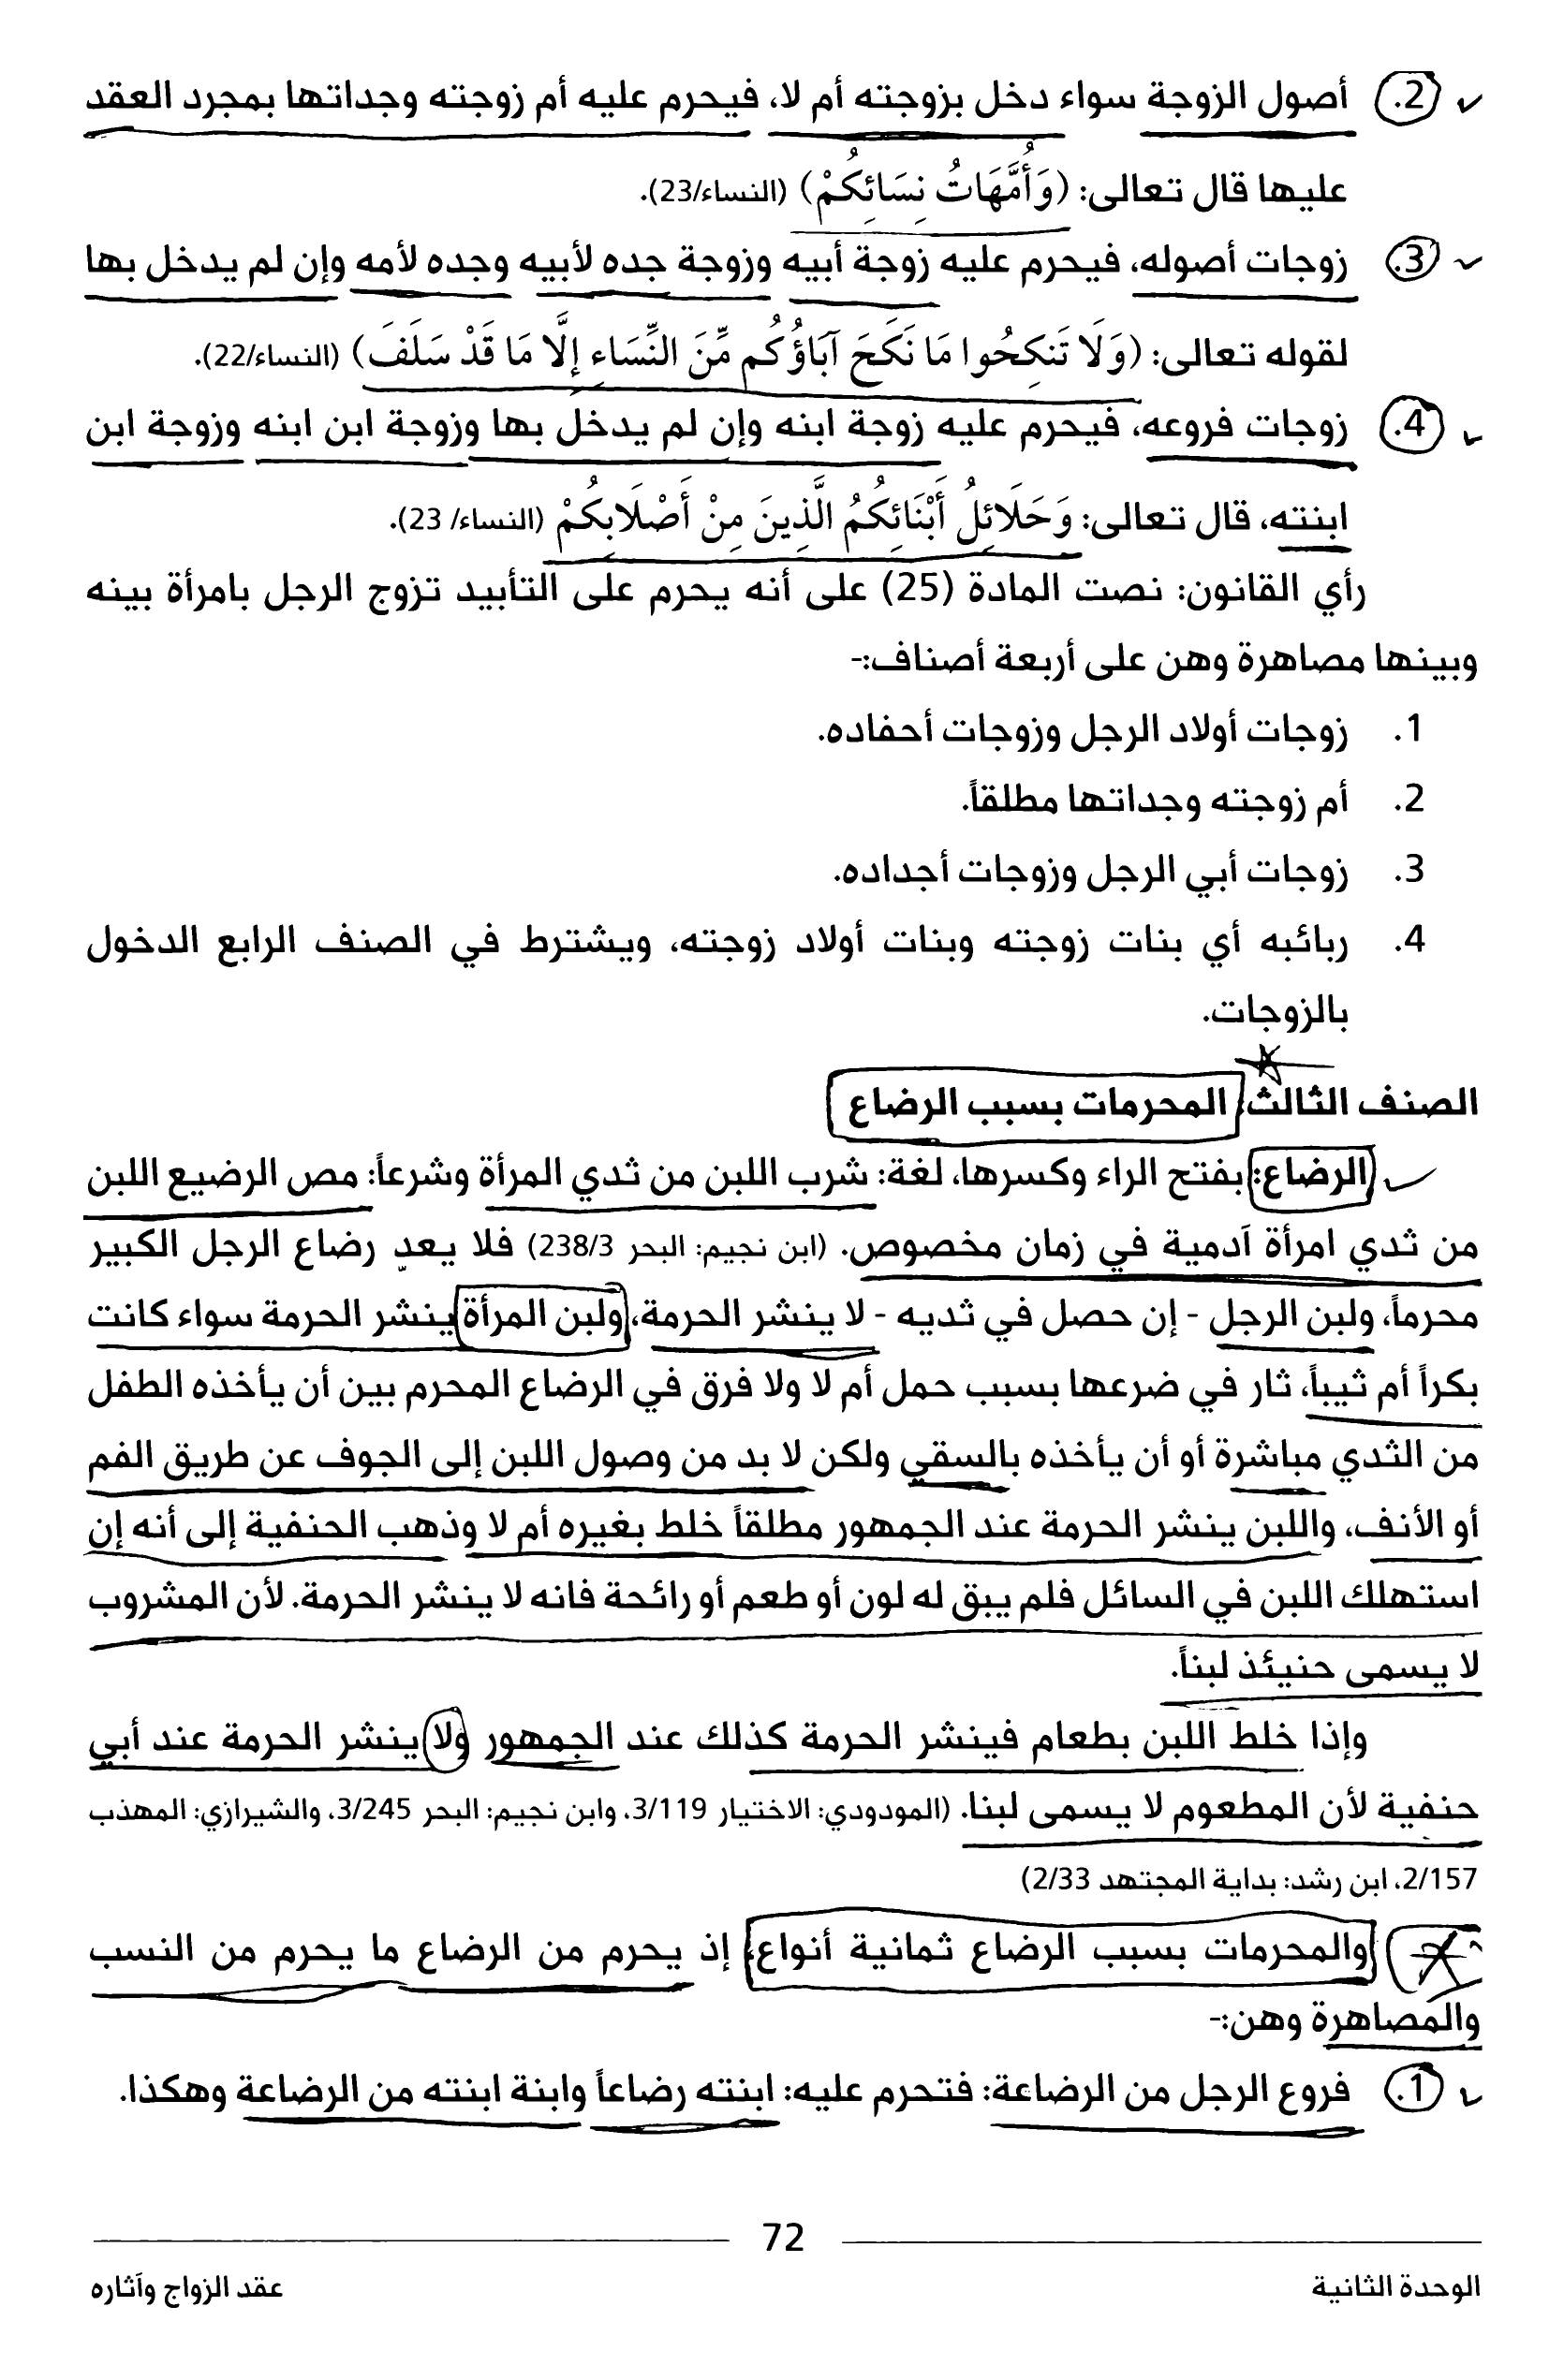 2. أصول الزوجة سواء دخل بزوجته أم لا، فيحرم عليه أم زوجته وجداتها بمجرد العقد
عليها قال تعالى: (وَأُمَّهَاتُ نِسَائِكُمْ) (النساء/23).
3. زوجات أصوله، فيحرم عليه زوجة أبيه وزوجة جده لأبيه وجده لأمه وإن لم يدخل بها
لقوله تعالى: (وَلَا تَنكِحُوا مَا نَكَحَ آبَاؤُكُم مِّنَ النِّسَاءِ إِلَّا مَا قَدْ سَلَفَ) (النساء/22).
4. زوجات فروعه، فيحرم عليه زوجة ابنه وإن لم يدخل بها وزوجة ابن ابنه وزوجة ابن
ابنته، قال تعالى: وَحَلَائِلُ أَبْنَائِكُمُ الَّذِينَ مِنْ أَصْلَابِكُمْ (النساء/ 23).
رأي القانون: نصت المادة (25) على أنه يحرم على التأبيد تزوج الرجل بامرأة بينه
وبينها مصاهرة وهن على أربعة أصناف:-
1. زوجات أولاد الرجل وزوجات أحفاده.
2. أم زوجته وجداتها مطلقاً.
3. زوجات أبي الرجل وزوجات أجداده.
4. ربائبه أي بنات زوجته وبنات أولاد زوجته، ويشترط في الصنف الرابع الدخول
بالزوجات.
الصنف الثالث: المحرمات بسبب الرضاع
الرضاع: بفتح الراء وكسرها، لغة: شرب اللبن من ثدي المرأة وشرعاً: مص الرضيع اللبن
من ثدي امرأة آدمية في زمان مخصوص. (ابن نجيم: البحر 238/3) فلا يعد رضاع الرجل الكبير
محرماً، ولبن الرجل - إن حصل في ثديه - لا ينشر الحرمة، ولبن المرأة ينشر الحرمة سواء كانت
بكراً أم ثيباً، ثار في ضرعها بسبب حمل أم لا ولا فرق في الرضاع المحرم بين أن يأخذه الطفل
من الثدي مباشرة أو أن يأخذه بالسقي ولكن لا بد من وصول اللبن إلى الجوف عن طريق الفم
أو الأنف، واللبن ينشر الحرمة عند الجمهور مطلقاً خلط بغيره أم لا وذهب الحنفية إلى أنه إن
استهلك اللبن في السائل فلم يبق له لون أو طعم أو رائحة فانه لا ينشر الحرمة. لأن المشروب
لا يسمى حنيئذ لبناً.
وإذا خلط اللبن بطعام فينشر الحرمة كذلك عند الجمهور ولا ينشر الحرمة عند أبي
حنفية لأن المطعوم لا يسمى لبنا. (المودودي: الاختيار 3/119، وابن نجيم: البحر 3/245، والشيرازي: المهذب
2/157، ابن رشد: بداية المجتهد 2/33)
والمحرمات بسبب الرضاع ثمانية أنواع، إذ يحرم من الرضاع ما يحرم من النسب
والمصاهرة وهن:-
1. فروع الرجل من الرضاعة: فتحرم عليه: ابنته رضاعاً وابنة ابنته من الرضاعة وهكذا.
72
الوحدة الثانية
عقد الزواج وآثاره